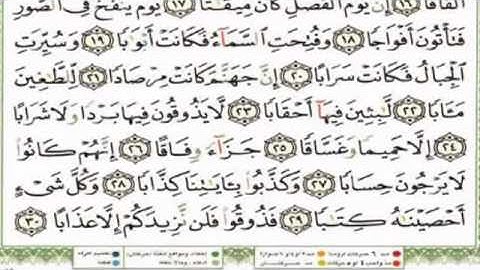 أَلْفَافًا ﴿١٦﴾ إِنَّ يَوْمَ الْفَصْلِ كَانَ مِيقَٰتًا ﴿١٧﴾ يَوْمَ يُنفَخُ فِي الصُّورِ
فَتَأْتُونَ أَفْوَاجًا ﴿١٨﴾ وَفُتِحَتِ السَّمَآءُ فَكَانَتْ أَبْوَٰبًا ﴿١٩﴾ وَسُيِّرَتِ
الْجِبَالُ فَكَانَتْ سَرَابًا ﴿٢٠﴾ إِنَّ جَهَنَّمَ كَانَتْ مِرْصَادًا ﴿٢١﴾ لِّلطَّٰغِينَ
مَـَٔابًا ﴿٢٢﴾ لَّٰبِثِينَ فِيهَآ أَحْقَابًا ﴿٢٣﴾ لَّا يَذُوقُونَ فِيهَا بَرْدًا وَلَا شَرَابًا
﴿٢٤﴾ إِلَّا حَمِيمًا وَغَسَّاقًا ﴿٢٥﴾ جَزَآءً وِفَاقًا ﴿٢٦﴾ إِنَّهُمْ كَانُوا۟
لَا يَرْجُونَ حِسَابًا ﴿٢٧﴾ وَكَذَّبُوا۟ بِـَٔايَٰتِنَا كِذَّابًا ﴿٢٨﴾ وَكُلَّ شَىْءٍ
أَحْصَيْنَٰهُ كِتَٰبًا ﴿٢٩﴾ فَذُوقُوا۟ فَلَن نَّزِيدَكُمْ إِلَّا عَذَابًا ﴿٣٠﴾